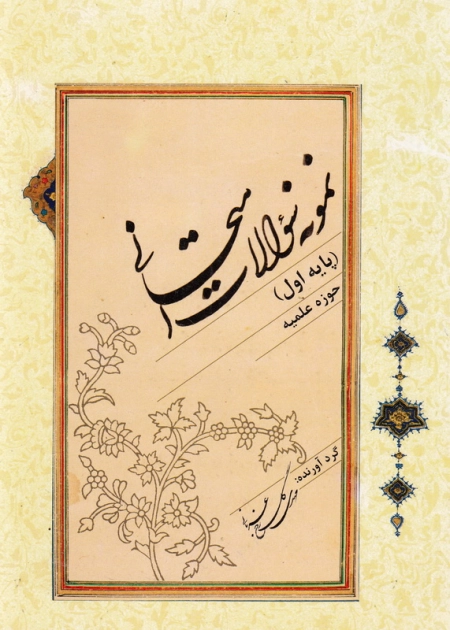 نمونه سئوالات امتحانی
(پایه اول)
حوزه علمیه
گرد آورنده: